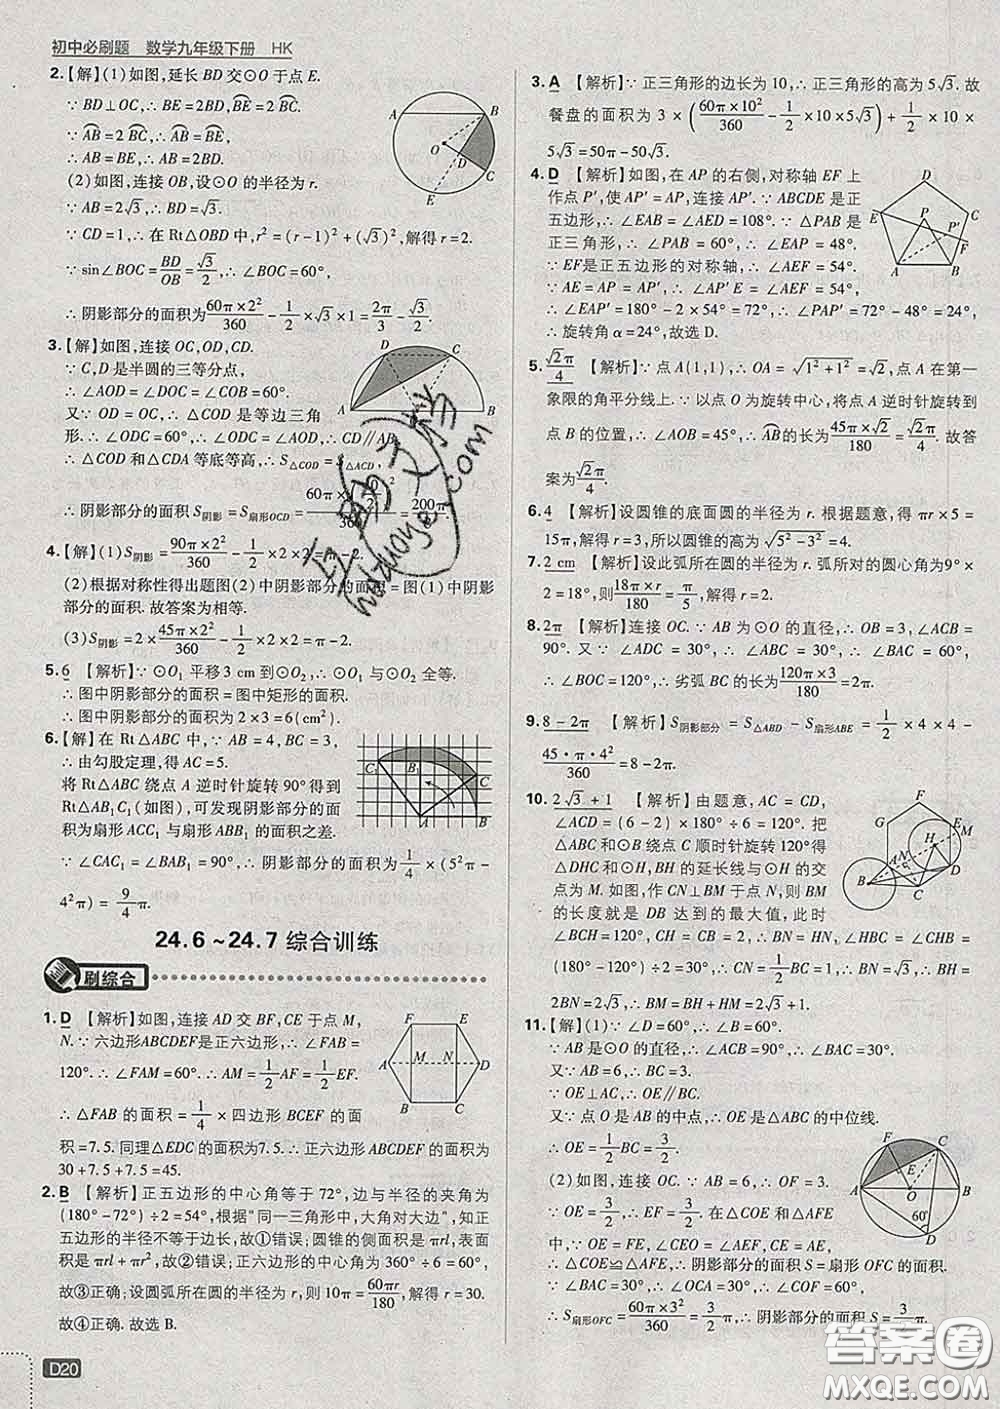 初中必刷题 数学九年级下册 HK
2.【解】(1)如图,延长 BD 交⊙O 于点 E.
∵ BD⊥OC,∴ BE=2BD,BE⌒=2 BC⌒.
∵ AB⌒=2 BC⌒,∴ AB⌒=BE⌒,
∴ AB=BE,∴ AB=2BD.
(2)如图,连接 OB,设⊙O 的半径为 r.
∵ AB=2√3,∴ BD=√3.
∵ CD=1,∴ 在 Rt△OBD 中,r²=(r-1)²+(√3)²,解得 r=2.
∵ sin∠BOC=BD/OB=√3/2,∴ ∠BOC=60°,
∴ 阴影部分的面积=60π×2²/360-1/2×√3×1=2π/3-√3/2.
3.【解】如图,连接 OC,OD,CD.
∵ C,D 是半圆的三等分点,
∴ ∠AOD=∠DOC=∠COB=60°.
又∵ OD=OC,∴ △COD 是等边三角
形.∴ ∠ODC=60°,∴ ∠ODC=∠AOD,∴ CD∥AB,
∴ △COD 和△CDA 等底等高,∴ S△COD=S△ACD,
∴ 阴影部分的面积 S阴影=S扇形OCD=
4.【解】(1)S阴影=90π×2²/360-1/2×2×2=π-2.
(2)根据对称性得出题图(2)中阴影部分的面积=图(1)中阴影
部分的面积.故答案为相等.
(3)S阴影=2×45π×2²/360-1/2×2×2=π-2.
5. 6 【解析】∵ ⊙O₁ 平移3 cm 到⊙O₂,∴ ⊙O₁ 与⊙O₂ 全等.
∴ 图中阴影部分的面积=图中矩形的面积.
∴ 图中阴影部分的面积为 2×3=6(cm²).
6.【解】在 Rt△ABC 中,∵ AB=4,BC=3,
∴ 由勾股定理,得 AC=5.
将 Rt△ABC 绕点 A 逆时针旋转 90°得到
Rt△AB₁C₁(如图),可发现阴影部分的面
积为扇形 ACC₁ 与扇形 ABB₁ 的面积之差.
∵ ∠CAC₁=∠BAB₁=90°,∴ 阴影部分的面积为1/4×(5²π-
4²π)=9/4π.
24.6~24.7 综合训练
刷综合
1. D 【解析】如图,连接 AD 交 BF,CE 于点 M,
N.∵ 六边形ABCDEF是正六边形,∴ ∠FAB=
120°.∴ ∠FAM=60°.∴ AM=1/2AF=1/2EF.
∴ △FAB 的面积=1/4×四边形 BCEF 的面
积=7.5.同理△EDC 的面积为7.5.∴ 正六边形 ABCDEF 的面积=
30+7.5+7.5=45.
2. B 【解析】正五边形的中心角等于 72°,边与半径的夹角为
(180°-72°)÷2=54°,根据“同一三角形中,大角对大边”,知正
五边形的半径不等于边长;故①错误;圆锥的侧面面积是 πrl,表
面积是 πrl+πr²,故②错误;正六边形的中心角等于 360°÷6=60°,
故③正确;设圆弧所在的圆的半径是 r,则 10π=60πr/180,解得 r=30.
故④正确.故选 B.
D20
3. A 【解析】∵ 正三角形的边长为 10,∴ 正三角形的高为 5√3.故
餐盘的面积为 3×(60π×10²/360-1/2×10×5√3)+1/2×10×
5√3=50π-50√3.
4. D 【解析】如图,在 AP 的右侧,对称轴 EF 上
作点 P′,使 AP′=AP,连接 AP′.∵ ABCDE 是正
五边形,∴ ∠EAB=∠AED=108°.∵ △PAB 是
正三角形,∴ ∠PAB=60°,∴ ∠EAP=48°.
∵ EF是正五边形的对称轴,∴ ∠AEF=54°.
∵ AE=AP=AP′,∴ ∠AP′E=∠AEF=54°,
∴ ∠EAP′=180°-2×54°=72°,∴ ∠PAP′=72°-48°=24°,
∴ 旋转角 α=24°,故选 D.
5. √2π/4 【解析】∵ 点 A(1,1),∴ OA=√(1²+1²)=√2,点 A 在第一
象限的角平分线上.∵ 以点 O 为旋转中心,将点 A 逆时针旋转到
点 B 的位置,∴ ∠AOB=45°,∴ AB⌒的长为45π×√2/180=√2π/4.故答
案为√2π/4.
6. 4 【解析】设圆锥的底面圆的半径为 r.根据题意,得 πr×5=
15π,解得 r=3,所以圆锥的高为√(5²-3²)=4.
7. 2 cm 【解析】设此弧所在圆的半径为 r.弧所对的圆心角为9°×
2=18°,则18π×r/180=π/5,解得 r=2.
8. 2π 【解析】连接 OC.∵ AB 为⊙O 的直径,∴ OB=3,∠ACB=
90°.又∵ ∠ADC=30°,∴ ∠ABC=30°,∴ ∠BAC=60°,
∴ ∠BOC=120°,∴ 劣弧 BC 的长为120π×3/180=2π.
9. 8-2π 【解析】S阴影部分=S△ABD-S扇形ABE=1/2×4×4-
45·π·4²/360=8-2π.
10. 2√3+1 【解析】由题意,AC=CD,
∠ACD=(6-2)×180°÷6=120°.把
△ABC 和⊙B 绕点 C 顺时针旋转 120°得
△DHC 和⊙H,BH 的延长线与⊙H 的交
点为 M.如图,作 CN⊥BM 于点 N,则 BM
的长度就是 DB 达到的最大值,此时
∠BCH=120°,∴ BN=HN,∠CBH=
(180°-120°)÷2=30°,∴ CN=1/2BC=1,∴ BN=√3,∴ BH=
2BN=2√3,∴ BM=2√3+1,即 DB 的最大值=2√3+1.
11.【解】(1)∵ ∠D=60°,∴ ∠B=60°.
∵ AB是⊙O 的直径,∴ ∠ACB=90°,∴ ∠BAC=30°.
又∵ AB=6,∴ BC=3.
∵ OE⊥AC,∴ OE∥BC.
又∵ 点 O 是 AB 的中点,∴ OE 是△ABC 的中位线.
∴ OE=1/2BC=3/2.
(2)如图,连接 OC.∵ AB=6,∴ OF=3.
∵ OE=3/2,∴ EF=3/2.在△COE 和△AFE
中,∵ OE=FE,∠CEO=∠AEF,CE=AE,
∴ △COE≌△AFE,∴ 阴影部分的面积 S=扇形 OFC 的面积.
∵ ∠BAC=30°,∴ ∠OCA=30°,∴ ∠COF=60°,
∴ S扇形OFC=60π×3²/360=3/2π,∴ 阴影部分的面积 S=3/2π.
答案圈
MXQE.COM